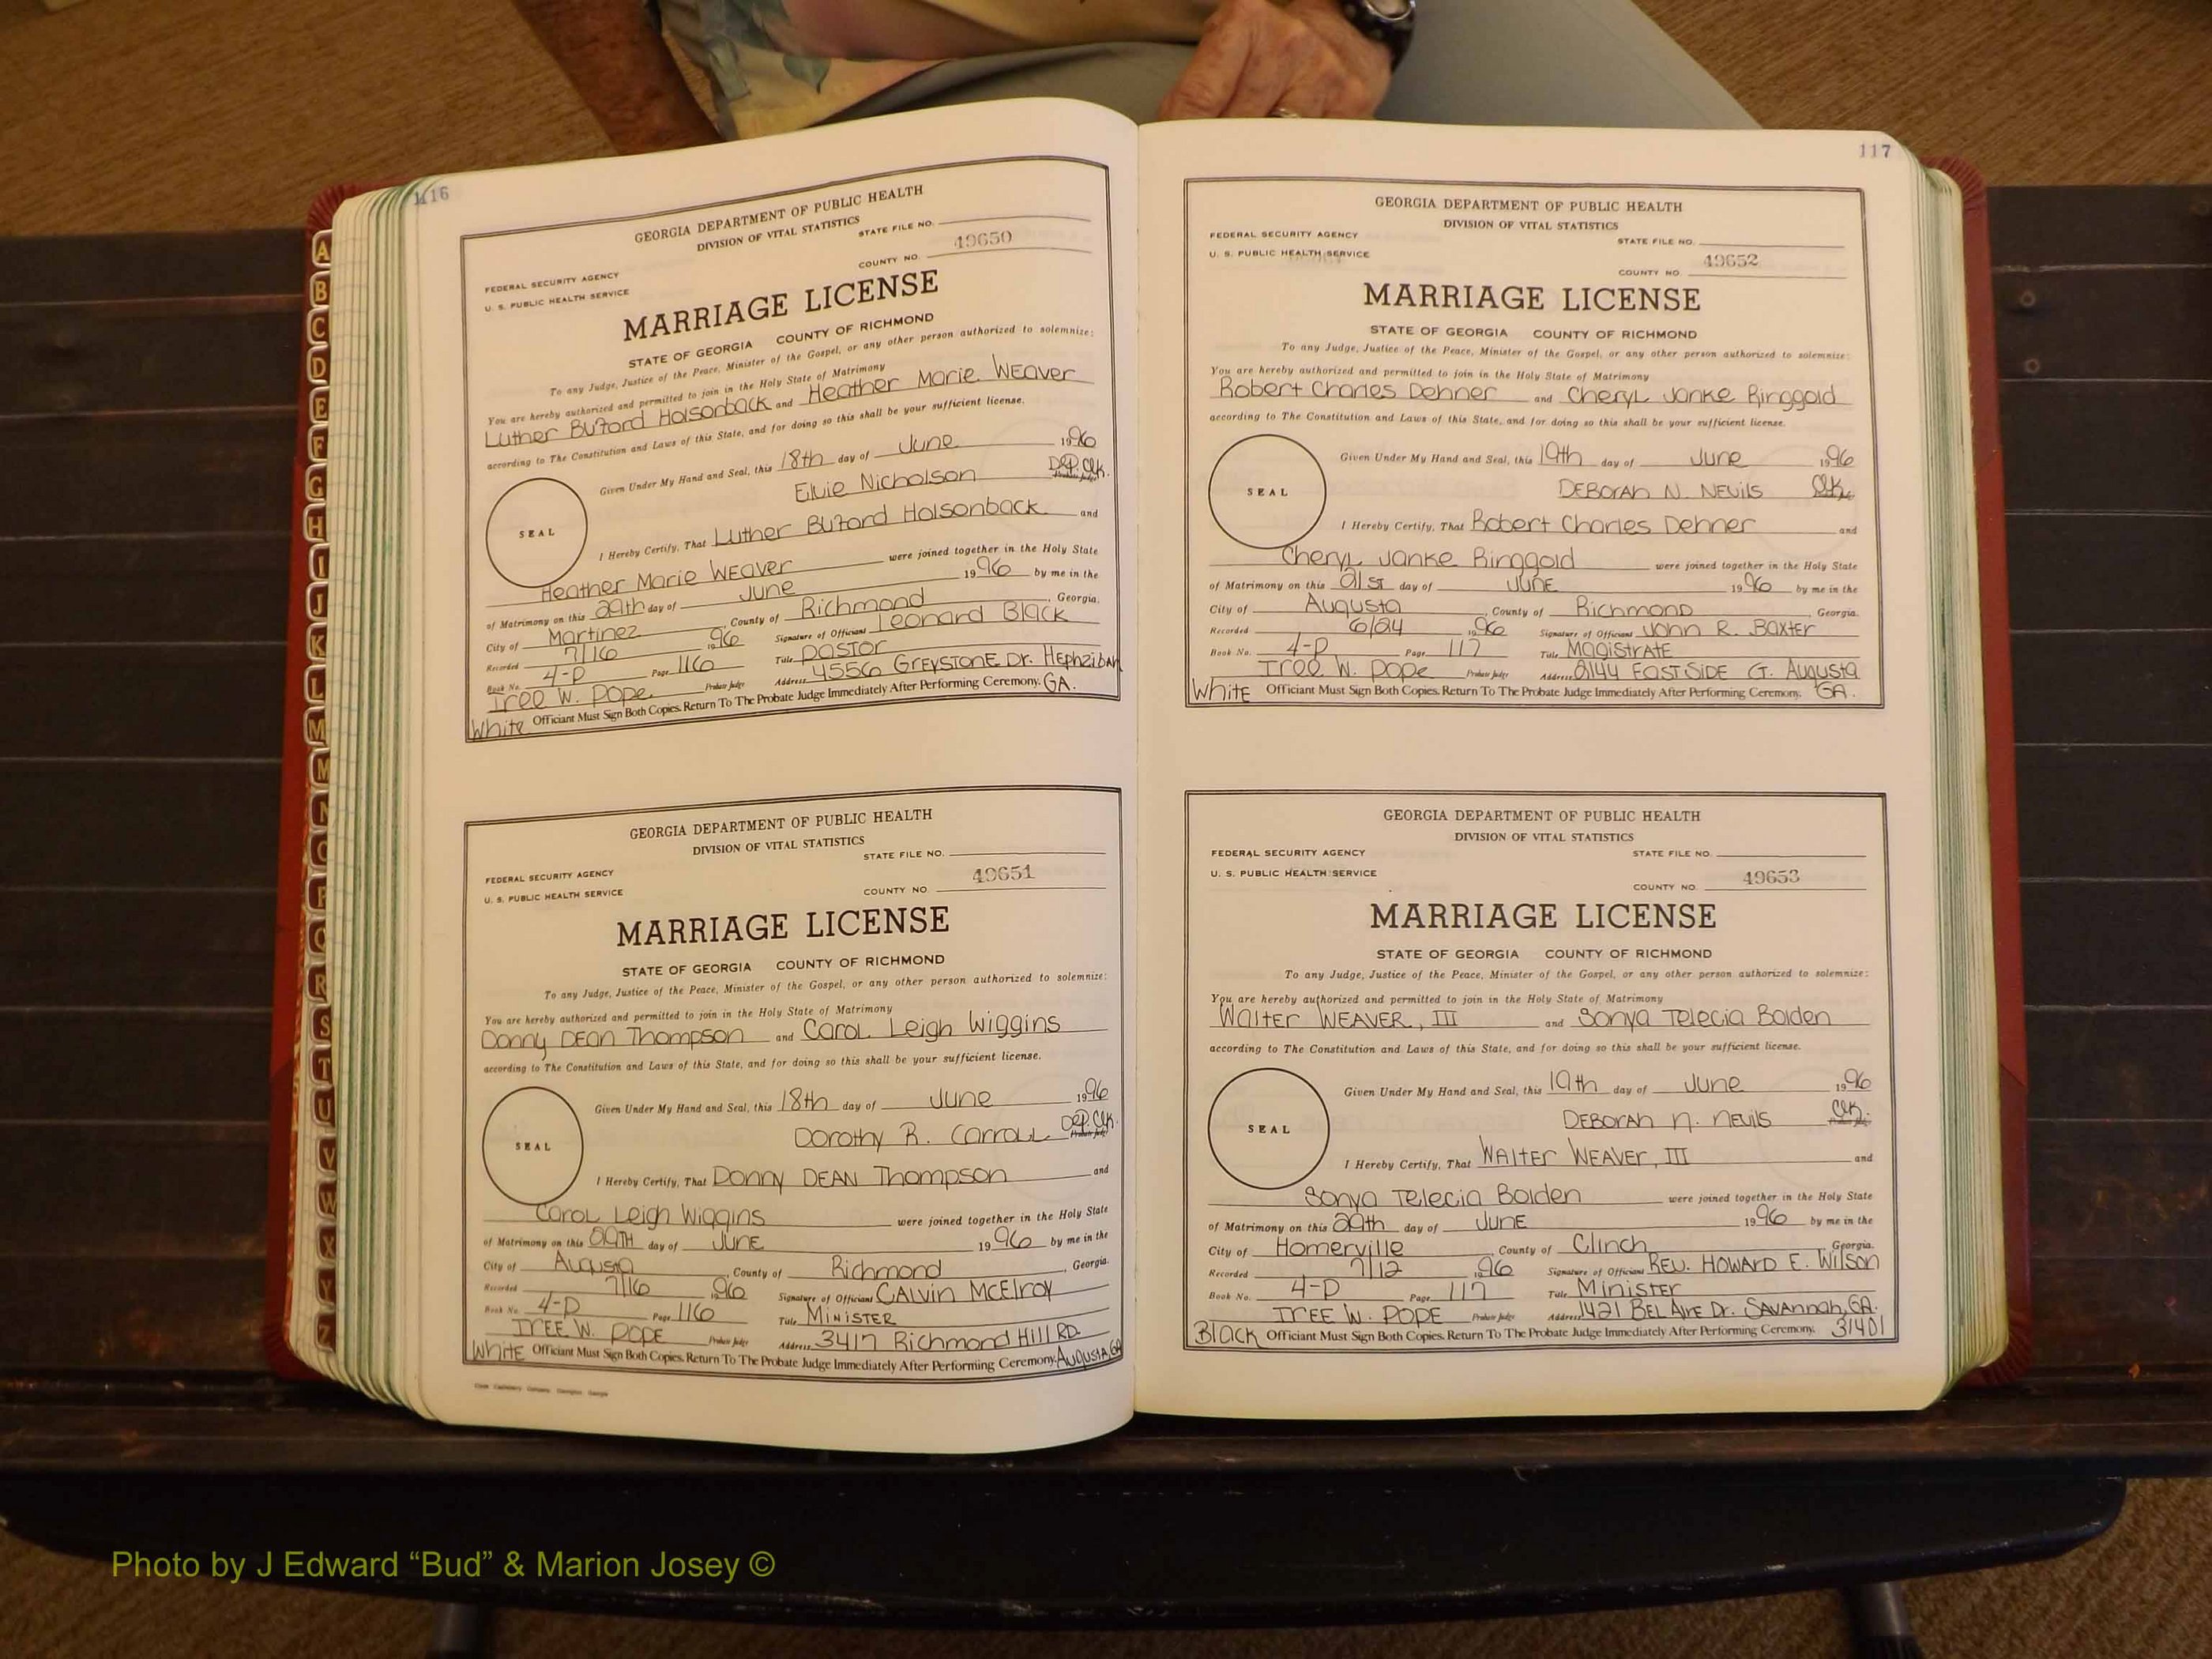 116
GEORGIA DEPARTMENT OF PUBLIC HEALTH
DIVISION OF VITAL STATISTICS
STATE FILE NO.
49650
COUNTY NO.
FEDERAL SECURITY AGENCY
U. S. PUBLIC HEALTH SERVICE
MARRIAGE LICENSE
STATE OF GEORGIA COUNTY OF RICHMOND
To any Judge, Justice of the Peace, Minister of the Gospel, or any other person authorized to solemnize:
You are hereby authorized and permitted to join in the Holy State of Matrimony
Luther Buford Holsonback and Heather Marie Weaver
according to The Constitution and Laws of this State, and for doing so this shall be your sufficient license.
Given Under My Hand and Seal, this 18th day of June 1996
Elvie Nicholson Dep. Clk.
Probate Judge
SEAL
I Hereby Certify, That Luther Buford Holsonback and
Heather Marie Weaver were joined together in the Holy State
of Matrimony on this 29th day of June 1996 by me in the
City of Martinez County of Richmond, Georgia.
Recorded 7/16 1996 Signature of Officiant Leonard Black
Book No. 4-P Page 116 Title Pastor
Tree W. Pope Probate Judge Address 4556 Greystone Dr. Hephzibah
White Officiant Must Sign Both Copies. Return To The Probate Judge Immediately After Performing Ceremony. GA.
GEORGIA DEPARTMENT OF PUBLIC HEALTH
DIVISION OF VITAL STATISTICS
STATE FILE NO.
FEDERAL SECURITY AGENCY
49651
U. S. PUBLIC HEALTH SERVICE
COUNTY NO.
MARRIAGE LICENSE
STATE OF GEORGIA COUNTY OF RICHMOND
To any Judge, Justice of the Peace, Minister of the Gospel, or any other person authorized to solemnize:
You are hereby authorized and permitted to join in the Holy State of Matrimony
Donny Dean Thompson and Carol Leigh Wiggins
according to The Constitution and Laws of this State, and for doing so this shall be your sufficient license.
Given Under My Hand and Seal, this 18th day of June 1996
Dorothy R. Carroll Dep. Clk.
Probate Judge
SEAL
I Hereby Certify, That Donny Dean Thompson and
Carol Leigh Wiggins were joined together in the Holy State
of Matrimony on this 29th day of June 1996 by me in the
City of Augusta, County of Richmond, Georgia.
Recorded 7/16 1996 Signature of Officiant Calvin McElroy
Book No. 4-P Page 116 Title Minister
Tree W. Pope Probate Judge Address 3417 Richmond Hill RD.
White Officiant Must Sign Both Copies. Return To The Probate Judge Immediately After Performing Ceremony. Augusta, GA
117
GEORGIA DEPARTMENT OF PUBLIC HEALTH
DIVISION OF VITAL STATISTICS
FEDERAL SECURITY AGENCY
STATE FILE NO.
U. S. PUBLIC HEALTH SERVICE
49652
COUNTY NO.
MARRIAGE LICENSE
STATE OF GEORGIA COUNTY OF RICHMOND
To any Judge, Justice of the Peace, Minister of the Gospel, or any other person authorized to solemnize:
You are hereby authorized and permitted to join in the Holy State of Matrimony
Robert Charles Dehner and Cheryl Janke Ringgold
according to The Constitution and Laws of this State, and for doing so this shall be your sufficient license.
Given Under My Hand and Seal, this 19th day of June 1996
Deborah N. Nevils Clk.
SEAL
I Hereby Certify, That Robert Charles Dehner and
Cheryl Janke Ringgold were joined together in the Holy State
of Matrimony on this 21st day of June 1996 by me in the
City of Augusta, County of Richmond Georgia.
Recorded 6/24 1996 Signature of Officiant John R. Baxter
Book No. 4-P Page 117 Title Magistrate
Tree W. Pope Probate Judge Address 2144 Eastside Augusta
White Officiant Must Sign Both Copies. Return To The Probate Judge Immediately After Performing Ceremony. GA.
GEORGIA DEPARTMENT OF PUBLIC HEALTH
DIVISION OF VITAL STATISTICS
FEDERAL SECURITY AGENCY
STATE FILE NO.
U. S. PUBLIC HEALTH SERVICE
49653
COUNTY NO.
MARRIAGE LICENSE
STATE OF GEORGIA COUNTY OF RICHMOND
To any Judge, Justice of the Peace, Minister of the Gospel, or any other person authorized to solemnize:
You are hereby authorized and permitted to join in the Holy State of Matrimony
Walter Weaver, III and Sonya Telecia Bolden
according to The Constitution and Laws of this State, and for doing so this shall be your sufficient license.
Given Under My Hand and Seal, this 19th day of June 1996
Deborah N. Nevils Clk.
Probate Judge
SEAL
I Hereby Certify, That Walter Weaver, III and
Sonya Telecia Bolden were joined together in the Holy State
of Matrimony on this 29th day of June 1996 by me in the
City of Homerville, County of Clinch Georgia.
Recorded 7/12 1996 Signature of Officiant Rev. Howard E. Wilson
Book No. 4-P Page 117 Title Minister
Tree W. Pope Probate Judge Address 1421 Bel Aire Dr. Savannah, GA.
Black Officiant Must Sign Both Copies. Return To The Probate Judge Immediately After Performing Ceremony. 31401
A
B
C
D
E
F
G
H
I
J
K
L
M
Mc
N
O
P
Q
R
S
T
U
V
W
X
Y
Z
Photo by J Edward “Bud” & Marion Josey ©